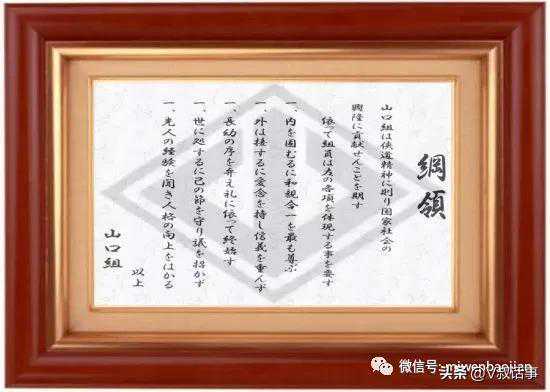 綱領
山口組は侠道精神に則り国家社会の
興隆に貢献せんことを期す
依って組員は左の各項を体現する事を要す
一、内を固むるに和親合一を最も尊ぶ
一、外は接するに愛念を持し信義を重んず
一、長幼の序を弁え礼に依って終始す
一、世に処するに己の節を守り譏を招かず
一、先人の経験を聞き人格の向上をはかる
以上
山口組
微信号: miwenbanjian
头条 @V叔话事